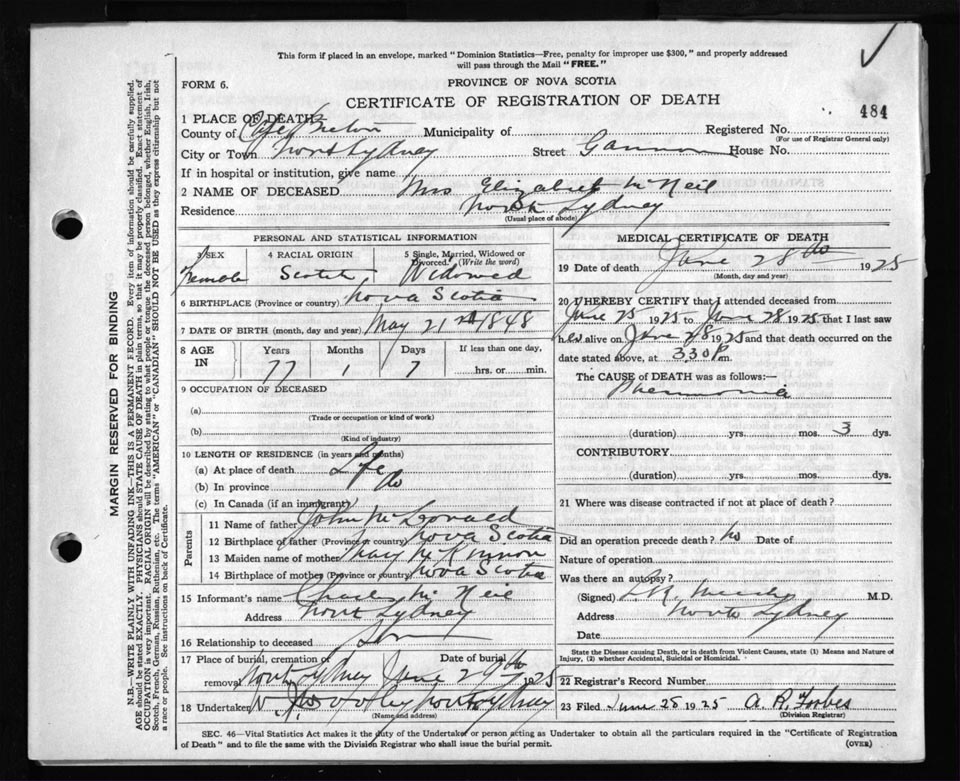 This form if placed in an envelope, marked "Dominion Statistics—Free, penalty for improper use $300," and properly addressed
will pass through the Mail "FREE."
FORM 6.
PROVINCE OF NOVA SCOTIA
CERTIFICATE OF REGISTRATION OF DEATH
484
1 PLACE OF DEATH
County of Cape Breton Municipality of Registered No.
(For use of Registrar General only)
City or Town North Sydney Street Gannon House No.
If in hospital or institution, give name
2 NAME OF DECEASED Mrs Elizabeth McNeil
Residence North Sydney
(Usual place of abode)
PERSONAL AND STATISTICAL INFORMATION
3 SEX 4 RACIAL ORIGIN 5 Single, Married, Widowed or Divorced. (Write the word)
Female Scotch Widowed
6 BIRTHPLACE (Province or country) Nova Scotia
7 DATE OF BIRTH (month, day and year) May 21st 1848
8 AGE IN Years Months Days If less than one day,
77 1 7 hrs. or min.
9 OCCUPATION OF DECEASED
(a)
(Trade or occupation or kind of work)
(b)
(Kind of industry)
10 LENGTH OF RESIDENCE (in years and months)
(a) At place of death Life
(b) In province do
(c) In Canada (if an immigrant)
Parents
11 Name of father John McDonald
12 Birthplace of father (Province or country) Nova Scotia
13 Maiden name of mother Mary McKinnon
14 Birthplace of mother (Province or country) Nova Scotia
15 Informant's name Charles McNeil
Address North Sydney
16 Relationship to deceased Son
17 Place of burial, cremation or removal North Sydney Date of burial June 29th 1925
18 Undertaker North Sydney
(Name and address)
MEDICAL CERTIFICATE OF DEATH
19 Date of death June 28th 1925
(Month, day and year)
20 I HEREBY CERTIFY that I attended deceased from
June 25 1925 to June 28 1925 that I last saw
her alive on June 28 1925 and that death occurred on the
date stated above, at 3.30 P m.
The CAUSE of DEATH was as follows:—
Pneumonia
(duration) yrs. mos. 3 dys.
CONTRIBUTORY
(duration) yrs. mos. dys.
21 Where was disease contracted if not at place of death?
Did an operation precede death? No Date of
Nature of operation
Was there an autopsy?
(Signed) M.D.
Address North Sydney
Date
State the Disease causing Death, or in death from Violent Causes, state (1) Means and Nature of
Injury, (2) whether Accidental, Suicidal or Homicidal.
22 Registrar's Record Number
23 Filed June 28 1925 A. R. Forbes
(Division Registrar)
SEC. 46—Vital Statistics Act makes it the duty of the Undertaker or person acting as Undertaker to obtain all the particulars required in the "Certificate of Registration
of Death" and to file the same with the Division Registrar who shall issue the burial permit.
(OVER)
MARGIN RESERVED FOR BINDING
N.B.—WRITE PLAINLY WITH UNFADING INK—THIS IS A PERMANENT RECORD. Every item of information should be carefully supplied.
AGE should be stated EXACTLY. PHYSICIANS should STATE CAUSE OF DEATH in plain terms, so that it may be properly classified. Exact statement of
OCCUPATION is very important. RACIAL ORIGIN will be described by stating to what people or tongue the deceased person belonged, whether English, Irish,
Scotch, French, German, Russian, Ruthenian, etc. The terms "AMERICAN" or "CANADIAN" SHOULD NOT BE USED as they express citizenship but not
a race or people. See instructions on back of Certificate.